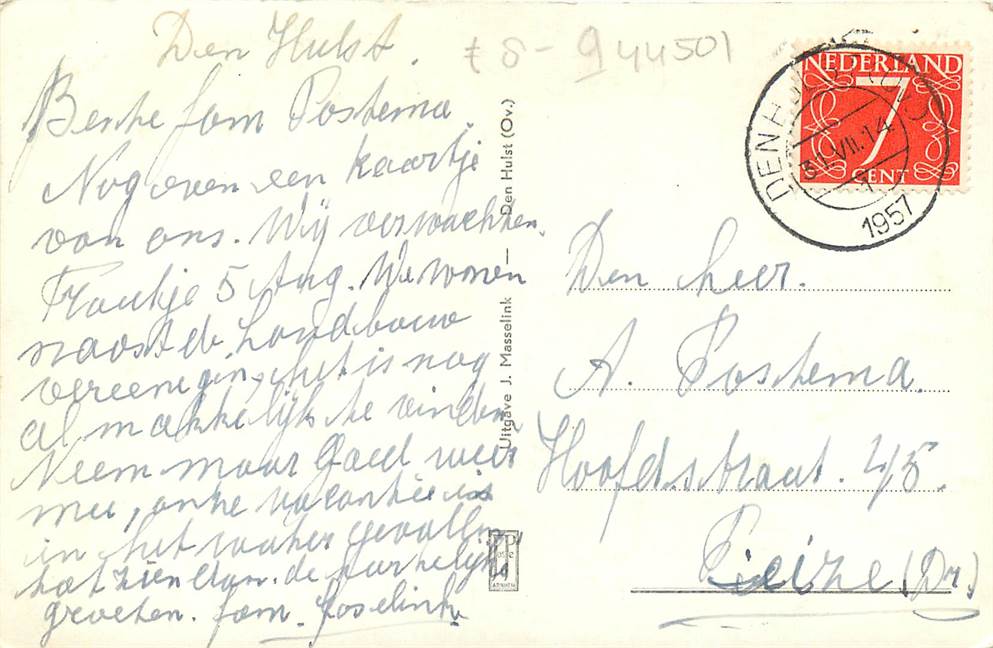 Den Hulst.
Beste fam Postema.
Nog even een kaartje
van ons. Wij verwachten
5 Aug. We wonen
naast de Landbouw
vereeneging, het is nog
al makkelijk te vinden
Neem maar goed weer
mee, onze vacantie is
in het water gevallen
tot ziens dan. de hartelijke
groeten. fam.
Uitgave J. Masselink — Den Hulst (Ov.)
£ 8 - 944501
NEDERLAND
7
CENT
DEN HULST
31.VII.14
1957
Den heer.
A. Postema.
Hoofdstraat 45.
Peize (Dr.)